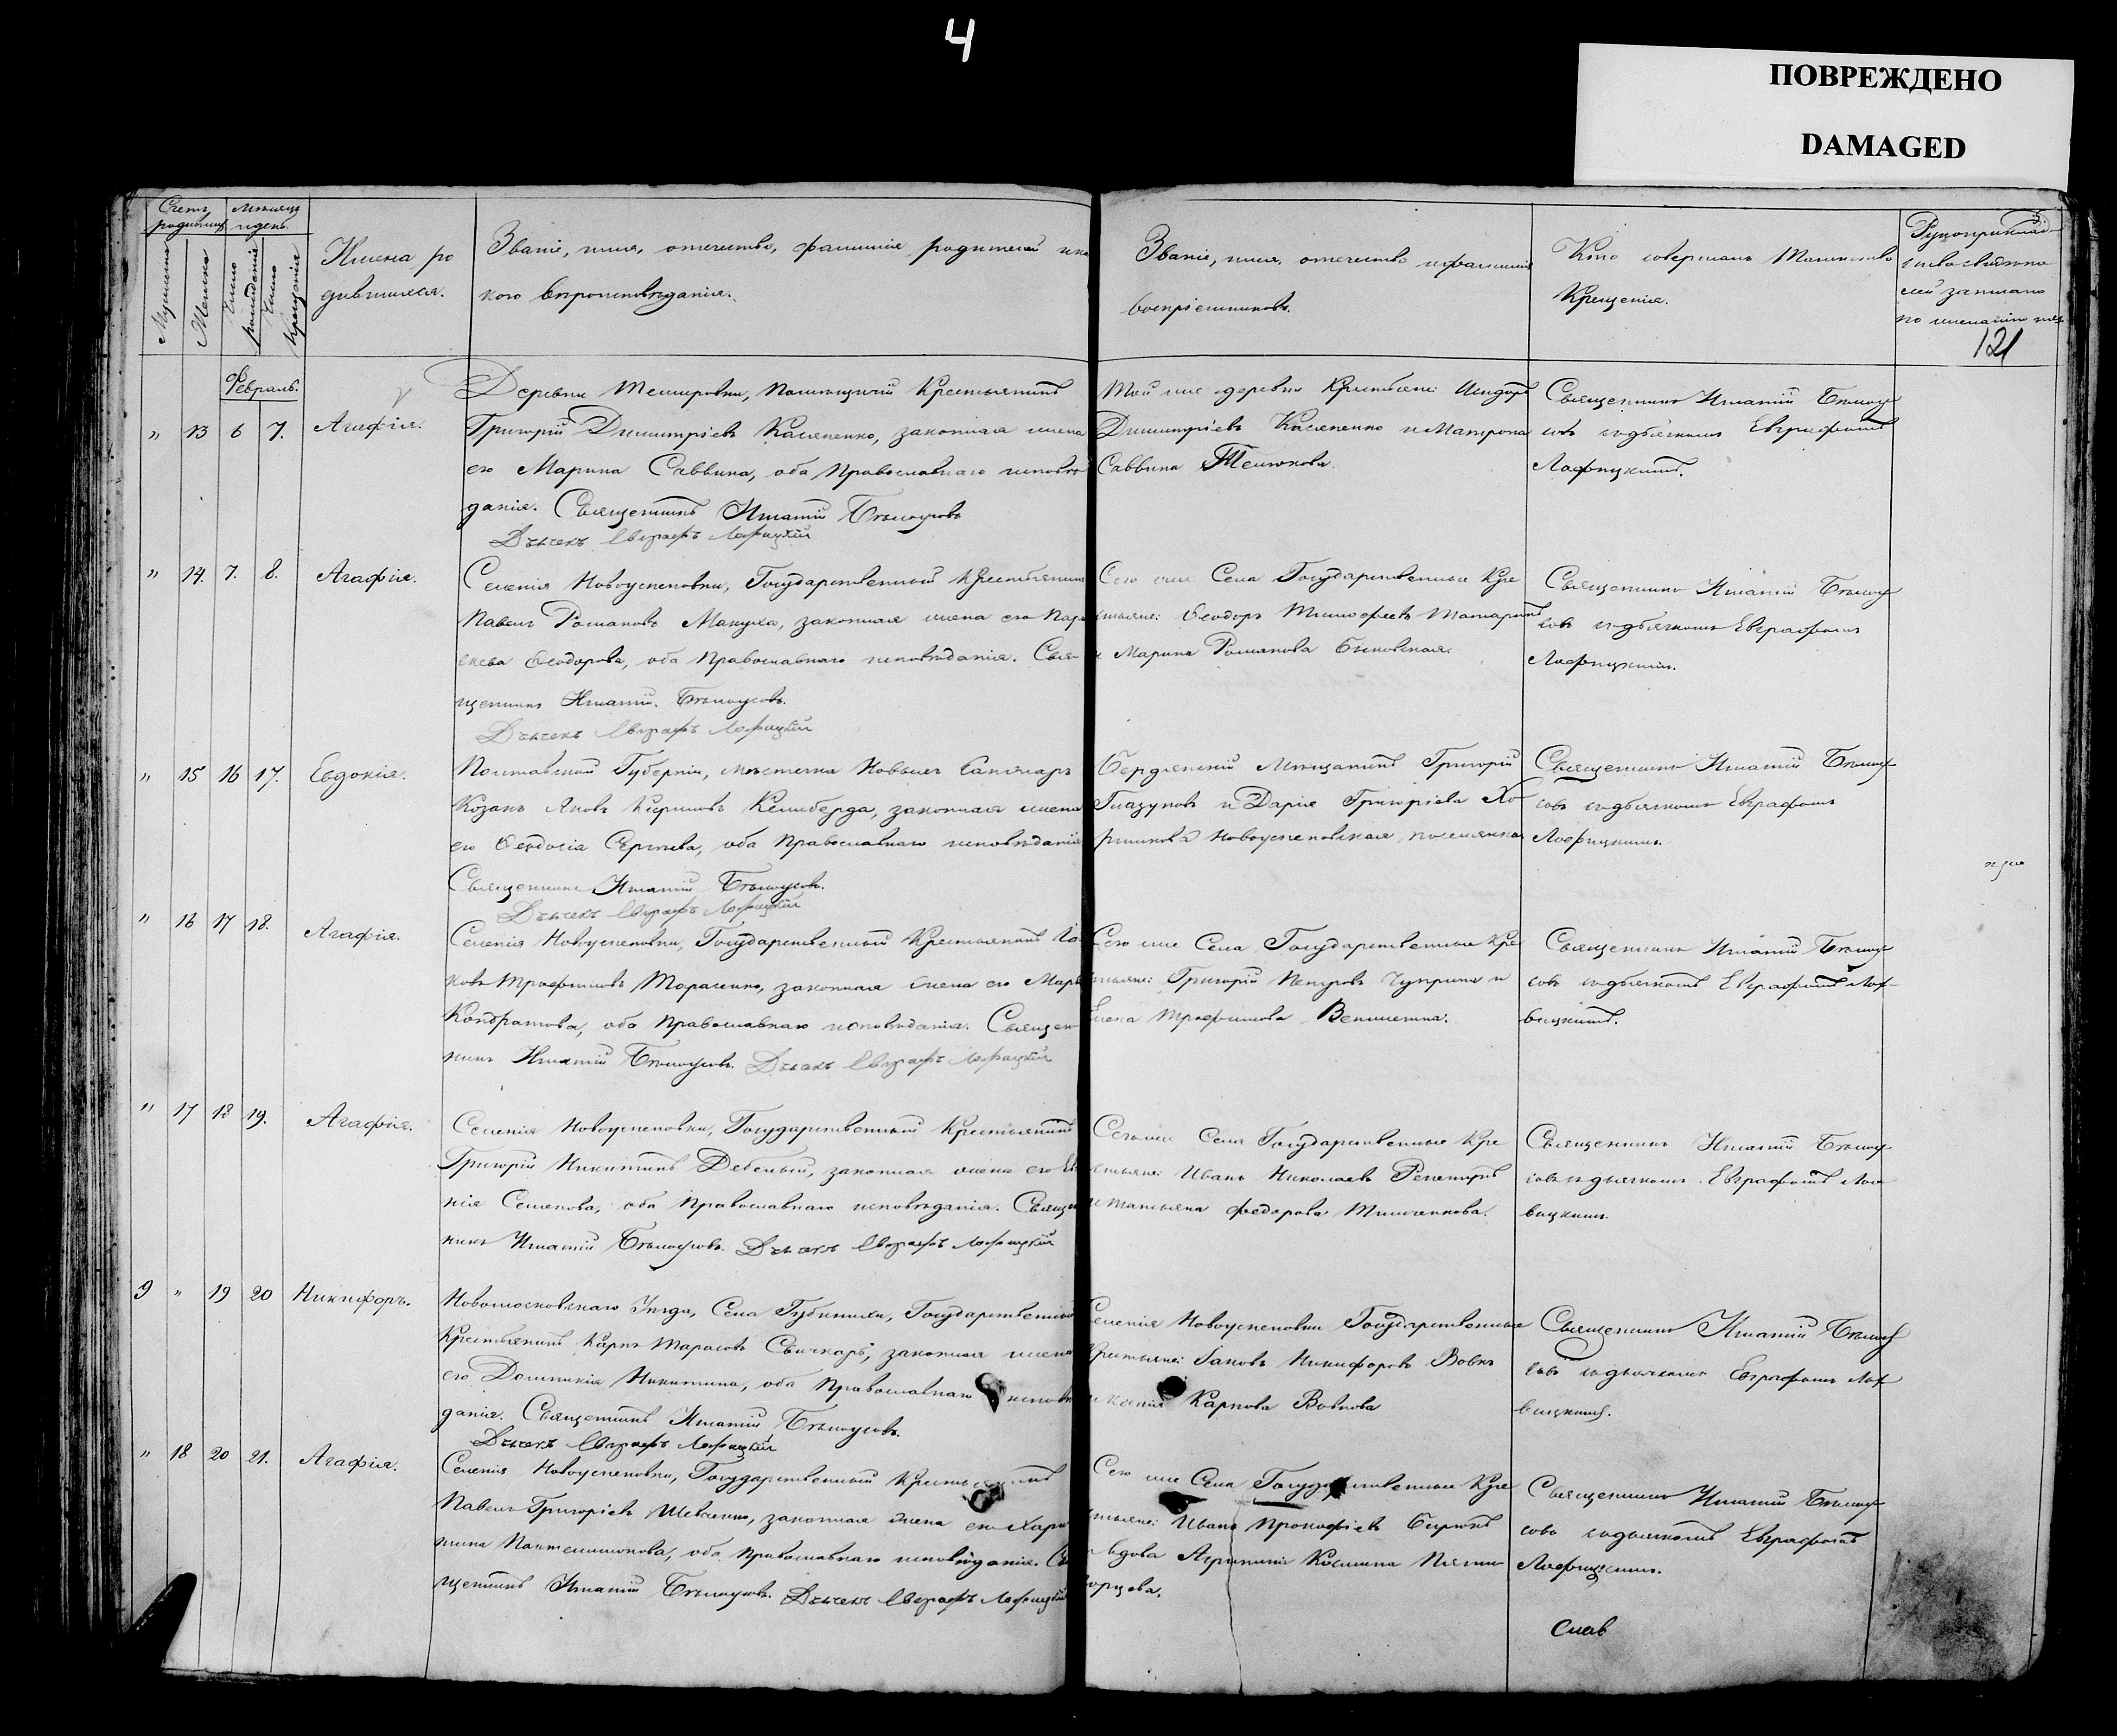 4
ПОВРЕЖДЕНО
DAMAGED
Счетъ родившихся
Мѣсяцъ и день.
Мужеска
Женска
Число рожденія
Число крещенія
Имена ро
дившихся.
Званіе, имя, отечество, фамилія родителей и ка
кого вѣроисповѣданія.
Званіе, имя, отечество и фамилія
воспріемниковъ.
Кто совершалъ Таинство
Крещенія.
Рукоприклад
ство свидѣте
лей записано
по желанію
121
Февраль.
" 13 6 7. Агафія.
Деревни Темировки, Помѣщичій Крестьянинъ
Григорій Димитріевъ Касяненко, законная жена
его Марина Саввина, оба Православнаго исповѣ
данія. Священникъ Игнатій Бѣлоусовъ
Дьячекъ Евграфъ Лофицкій
Той же деревни Крестьяне: Исидоръ
Димитріевъ Касяненко и Матрона
Саввина
Священникъ Игнатій Бѣлоу
совъ съ дьячкомъ Евграфомъ
Лофицкимъ.
" 14. 7. 8. Агафія.
Селенія Новоуспеновки, Государственный Крестьянинъ
Павелъ Романовъ Макуха, законная жена его Пара
скева Ѳеодорова, оба Православнаго исповѣданія. Свя
щенникъ Игнатій Бѣлоусовъ.
Дьячекъ Евграфъ Лофицкій
Сего же Села Государственные Кре
стьяне: Ѳеодоръ Тимофеевъ Татаринъ
и Марина Романова Быковская.
Священникъ Игнатій Бѣлоу
совъ съ дьячкомъ Евграфомъ
Лофицкимъ.
" 15 16 17. Евдокія.
Полтавской Губерніи, мѣстечка Новыхъ Санжаръ
Козакъ Яковъ Кириловъ Келеберда, законная жена
его Ѳеодосія Сергѣева, оба Православнаго исповѣданія
Священникъ Игнатій Бѣлоусовъ.
Дьячекъ Евграфъ Лофицкій
Бердянскій Мѣщанинъ Григорій
Глазуновъ и Дарія Григоріева Хо
Новоуспеновская поселянка
Священникъ Игнатій Бѣлоу
совъ съ дьячкомъ Евграфомъ
Лофицкимъ.
" 16 17 18. Агафія.
Селенія Новоуспеновки, Государственный Крестьянинъ Іа
ковъ Трофимовъ Тарасенко, законная жена его Марѳа
Кондратова, оба Православнаго исповѣданія. Священ
никъ Игнатій Бѣлоусовъ. Дьячекъ Евграфъ Лофицкій
Сего же Села Государственные Кре
стьяне: Григорій Петровъ Чуприна и
Елена Трофимова
Священникъ Игнатій Бѣлоу
совъ съ дьячкомъ Евграфомъ Лоф
вицкимъ.
" 17 18 19. Агафія.
Селенія Новоуспеновки, Государственный Крестьянинъ
Григорій Никитинъ Дебелый, законная жена его Ев
нія Семенова, оба Православнаго исповѣданія. Священ
никъ Игнатій Бѣлоусовъ. Дьячекъ Евграфъ Лофицкій
Сего же Села Государственные Кре
стьяне: Иванъ Николаевъ Репетунъ
и Татьяна Федорова Тимченкова.
Священникъ Игнатій Бѣлоу
совъ съ дьячкомъ Евграфомъ Лоф
вицкимъ.
9 " 19 20 Никифоръ.
Новомосковскаго Уѣзда, Села Губинихи, Государственный
Крестьянинъ Карпъ Тарасовъ Свичкарь, законная жена
его Домникія Никитина, оба Православнаго исповѣ
данія. Священникъ Игнатій Бѣлоусовъ.
Дьячекъ Евграфъ Лофицкій
Селенія Новоуспеновки Государственные
Крестьяне: Іаковъ Никифоровъ Вовкъ
и Ксенія Карпова Вовкова
Священникъ Игнатій Бѣлоу
совъ съ дьячкомъ Евграфомъ Лоф
вицкимъ.
" 18 20 21. Агафія.
Селенія Новоуспеновки, Государственный Крестьянинъ
Павелъ Григоріевъ Шевченко, законная жена его Хари
тина Пантелимонова, оба Православнаго исповѣданія. Свя
щенникъ Игнатій Бѣлоусовъ. Дьячекъ Евграфъ Лофицкій
Сего же Села Государственные Кре
стьяне: Иванъ Прокофіевъ Бирюкъ
и вдова Агрипина Космина
Священникъ Игнатій Бѣлоу
совъ съ дьячкомъ Евграфомъ
Лофицкимъ.